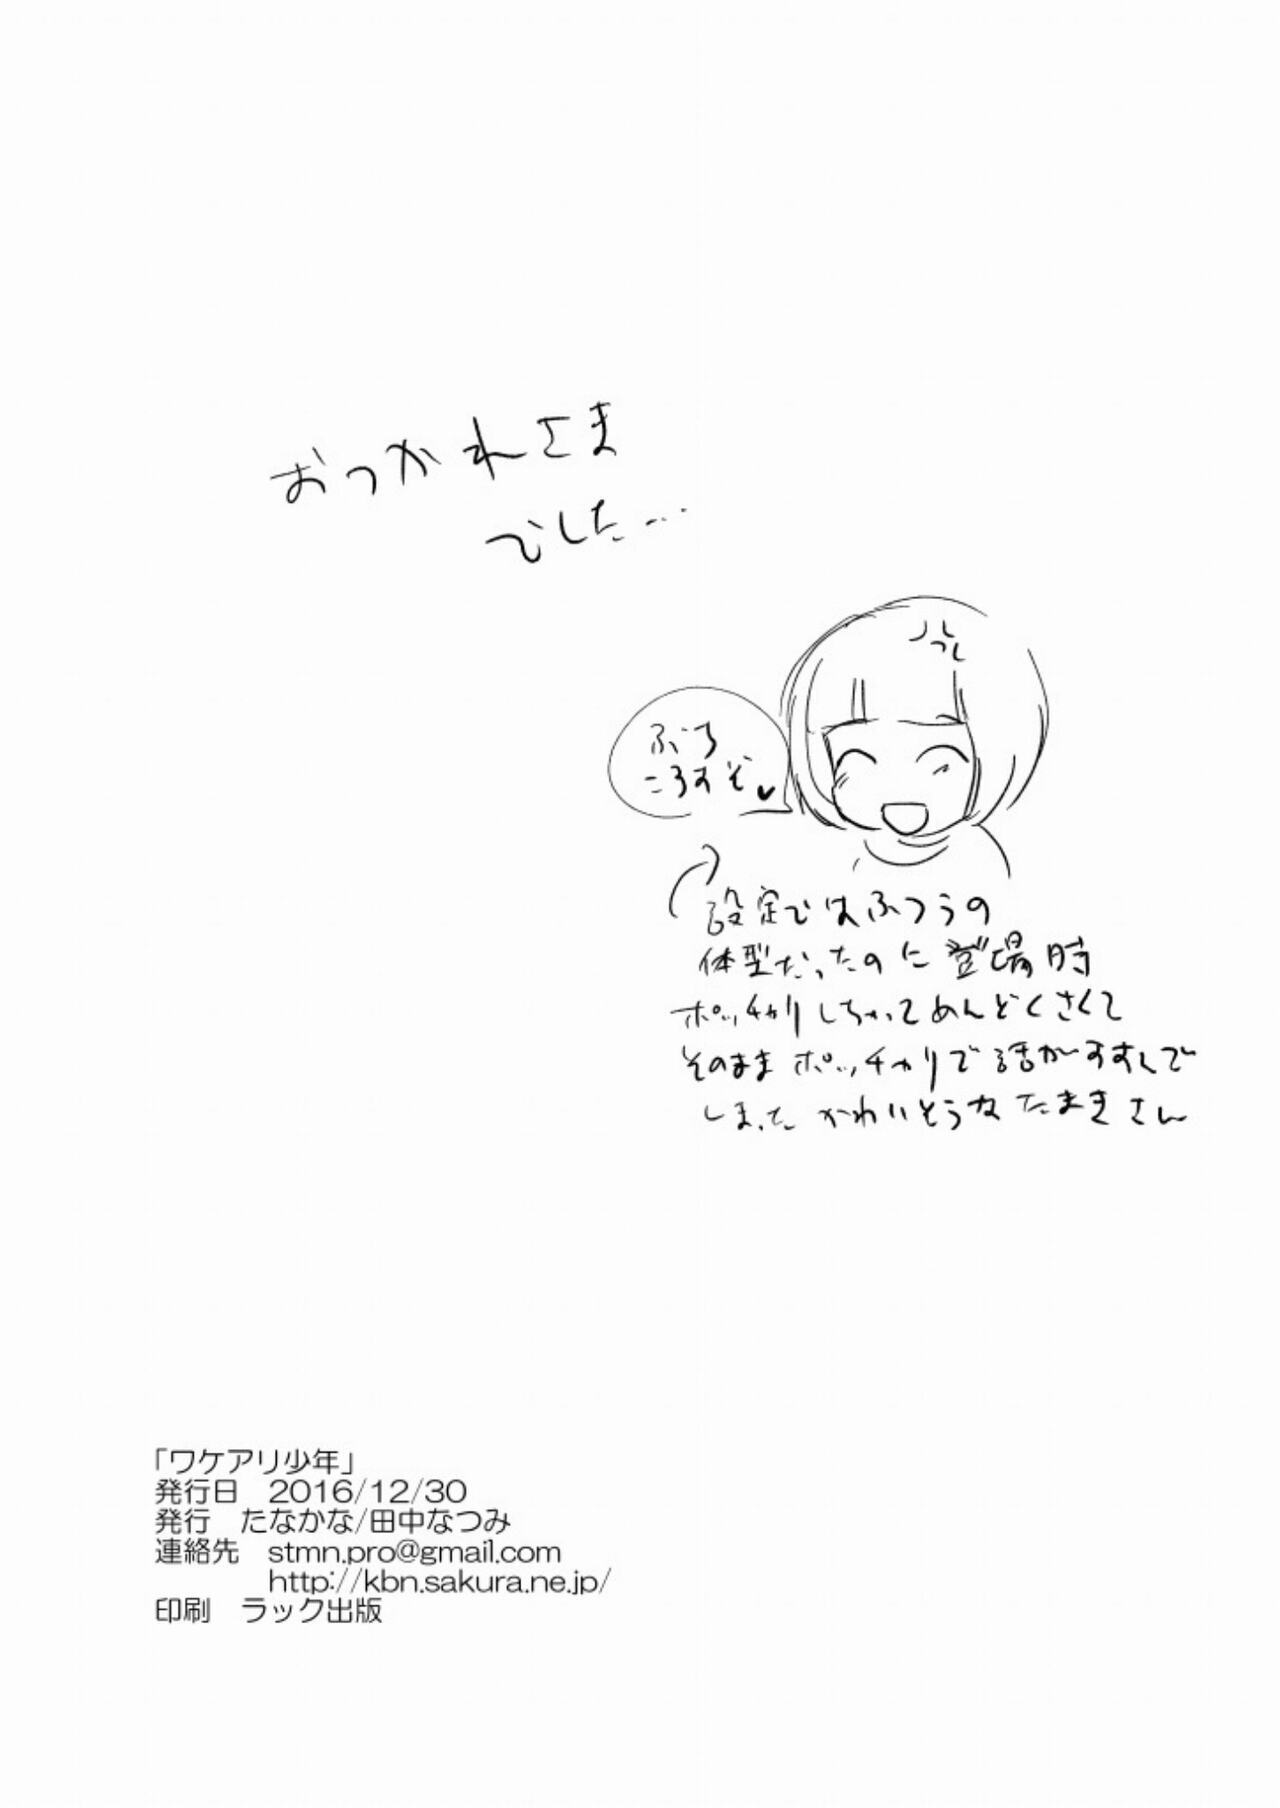 おつかれさま
でした…
ぶち
ころすぞ♥
設定ではふつうの
体型だったのに登場時
ポッチャリしちゃってめんどくさくて
そのままポッチャリで話がすすんで
しまった かわいそうなたまきさん
「ワケアリ少年」
発行日　2016/12/30
発行　たなかな/田中なつみ
連絡先　stmn.pro@gmail.com
http://kbn.sakura.ne.jp/
印刷　ラック出版